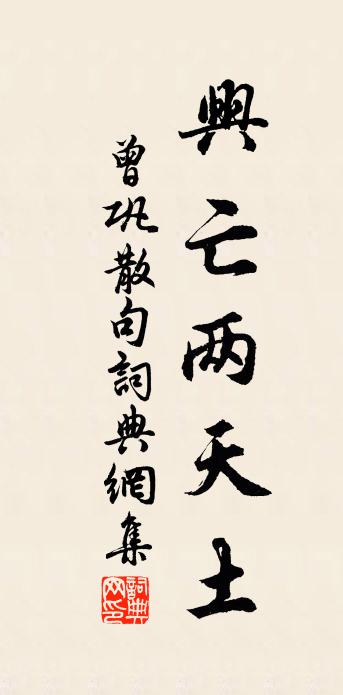 興亡两天土
曾巩散句詞典網集
詞典网印